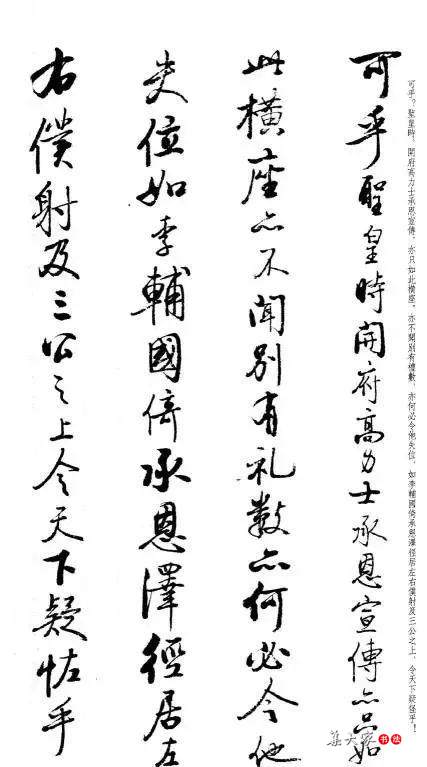 可乎？聖皇時，開府高力士承恩宣傳，亦只如此横座，亦不聞別有禮數，亦何必令他失位，如李輔國倚承恩澤徑居左右僕射及三公之上，令天下疑怪乎！
可乎聖皇時開府高力士承恩宣傳亦只如
此橫座亦不聞別有礼數亦何必令他
失位如李輔國倚承恩澤徑居左
右僕射及三公之上令天下疑怪乎
集大家 书法